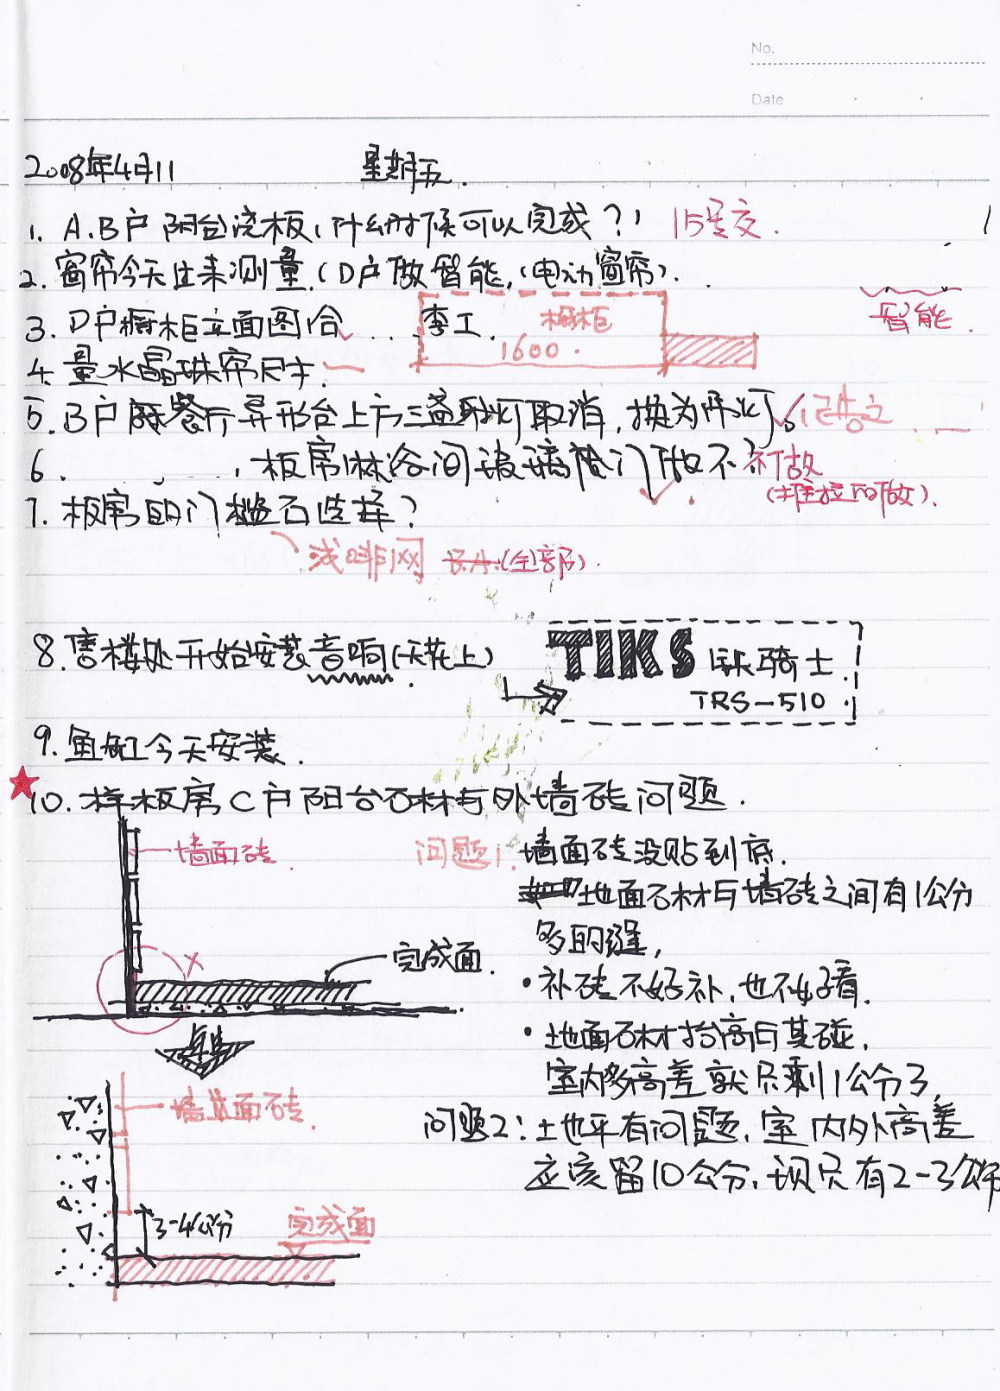 No.
Date
2008年4月11 星期五.
1. A.B户阳台浇板, 什么时候可以完成?) 15号交.
2. 窗帘今天过来测量.(D户做智能,(电动窗帘).
智能.
3. D户橱柜立面图给 ... 李工 橱柜
1600.
4. 量水晶珠帘尺寸.
5. B户 餐厅异形台上方三盏射灯取消, 换为吊灯. 已告之
6. 板房淋浴间玻璃 门做不 不做
(推拉的做).
7. 板房的门槛石选择?
浅啡网 (全部).
8. 售楼处开始安装音响(天花上)
TIKS 铁骑士
TRS-510
9. 鱼缸今天安装.
10. 样板房C户阳台石材与外墙砖问题.
墙面砖 问题1. 墙面砖没贴到底.
地面石材与墙砖之间有1公分
多的缝,
完成面.
·补砖不好补,也不好看.
·地面石材抬高与其碰,
室内外高差就只剩1公分了,
墙面砖.
问题2: 土地平有问题, 室内外高差
应该留10公分,现只有2-3公分
3-4公分 完成面